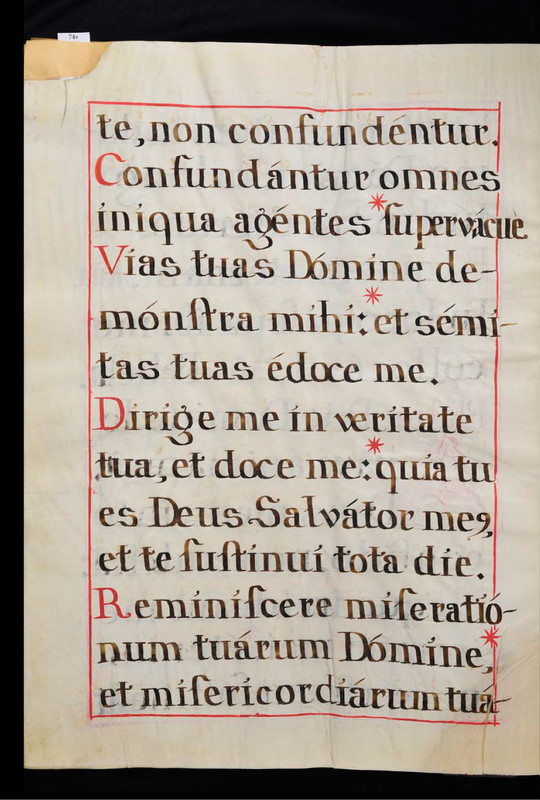 74v
te, non confundéntur.
Confundántur omnes
iniqua agéntes * ſupervácue.
Vias tuas Dómine de-
mónſtra mihi: * et sémi-
tas tuas édoce me.
Dirige me in veritate
tua, et doce me: * quia tu
es Deus Salvátor meꝰ,
et te ſuſtinui tota die.
Reminiſcere miſeratió-
num tuárum Dómine, *
et miſericordiárum tuá-